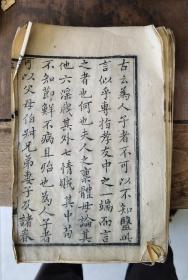 古云為人子者不可以不知醫此
言似乎專指孝友中之一端而言
之者也何也夫人之稟體毋論其
他六淫賊其外七情賊其中苟
不知節鮮不病且殆也為人子者
可以父母伯叔兄弟妻子及諸眷